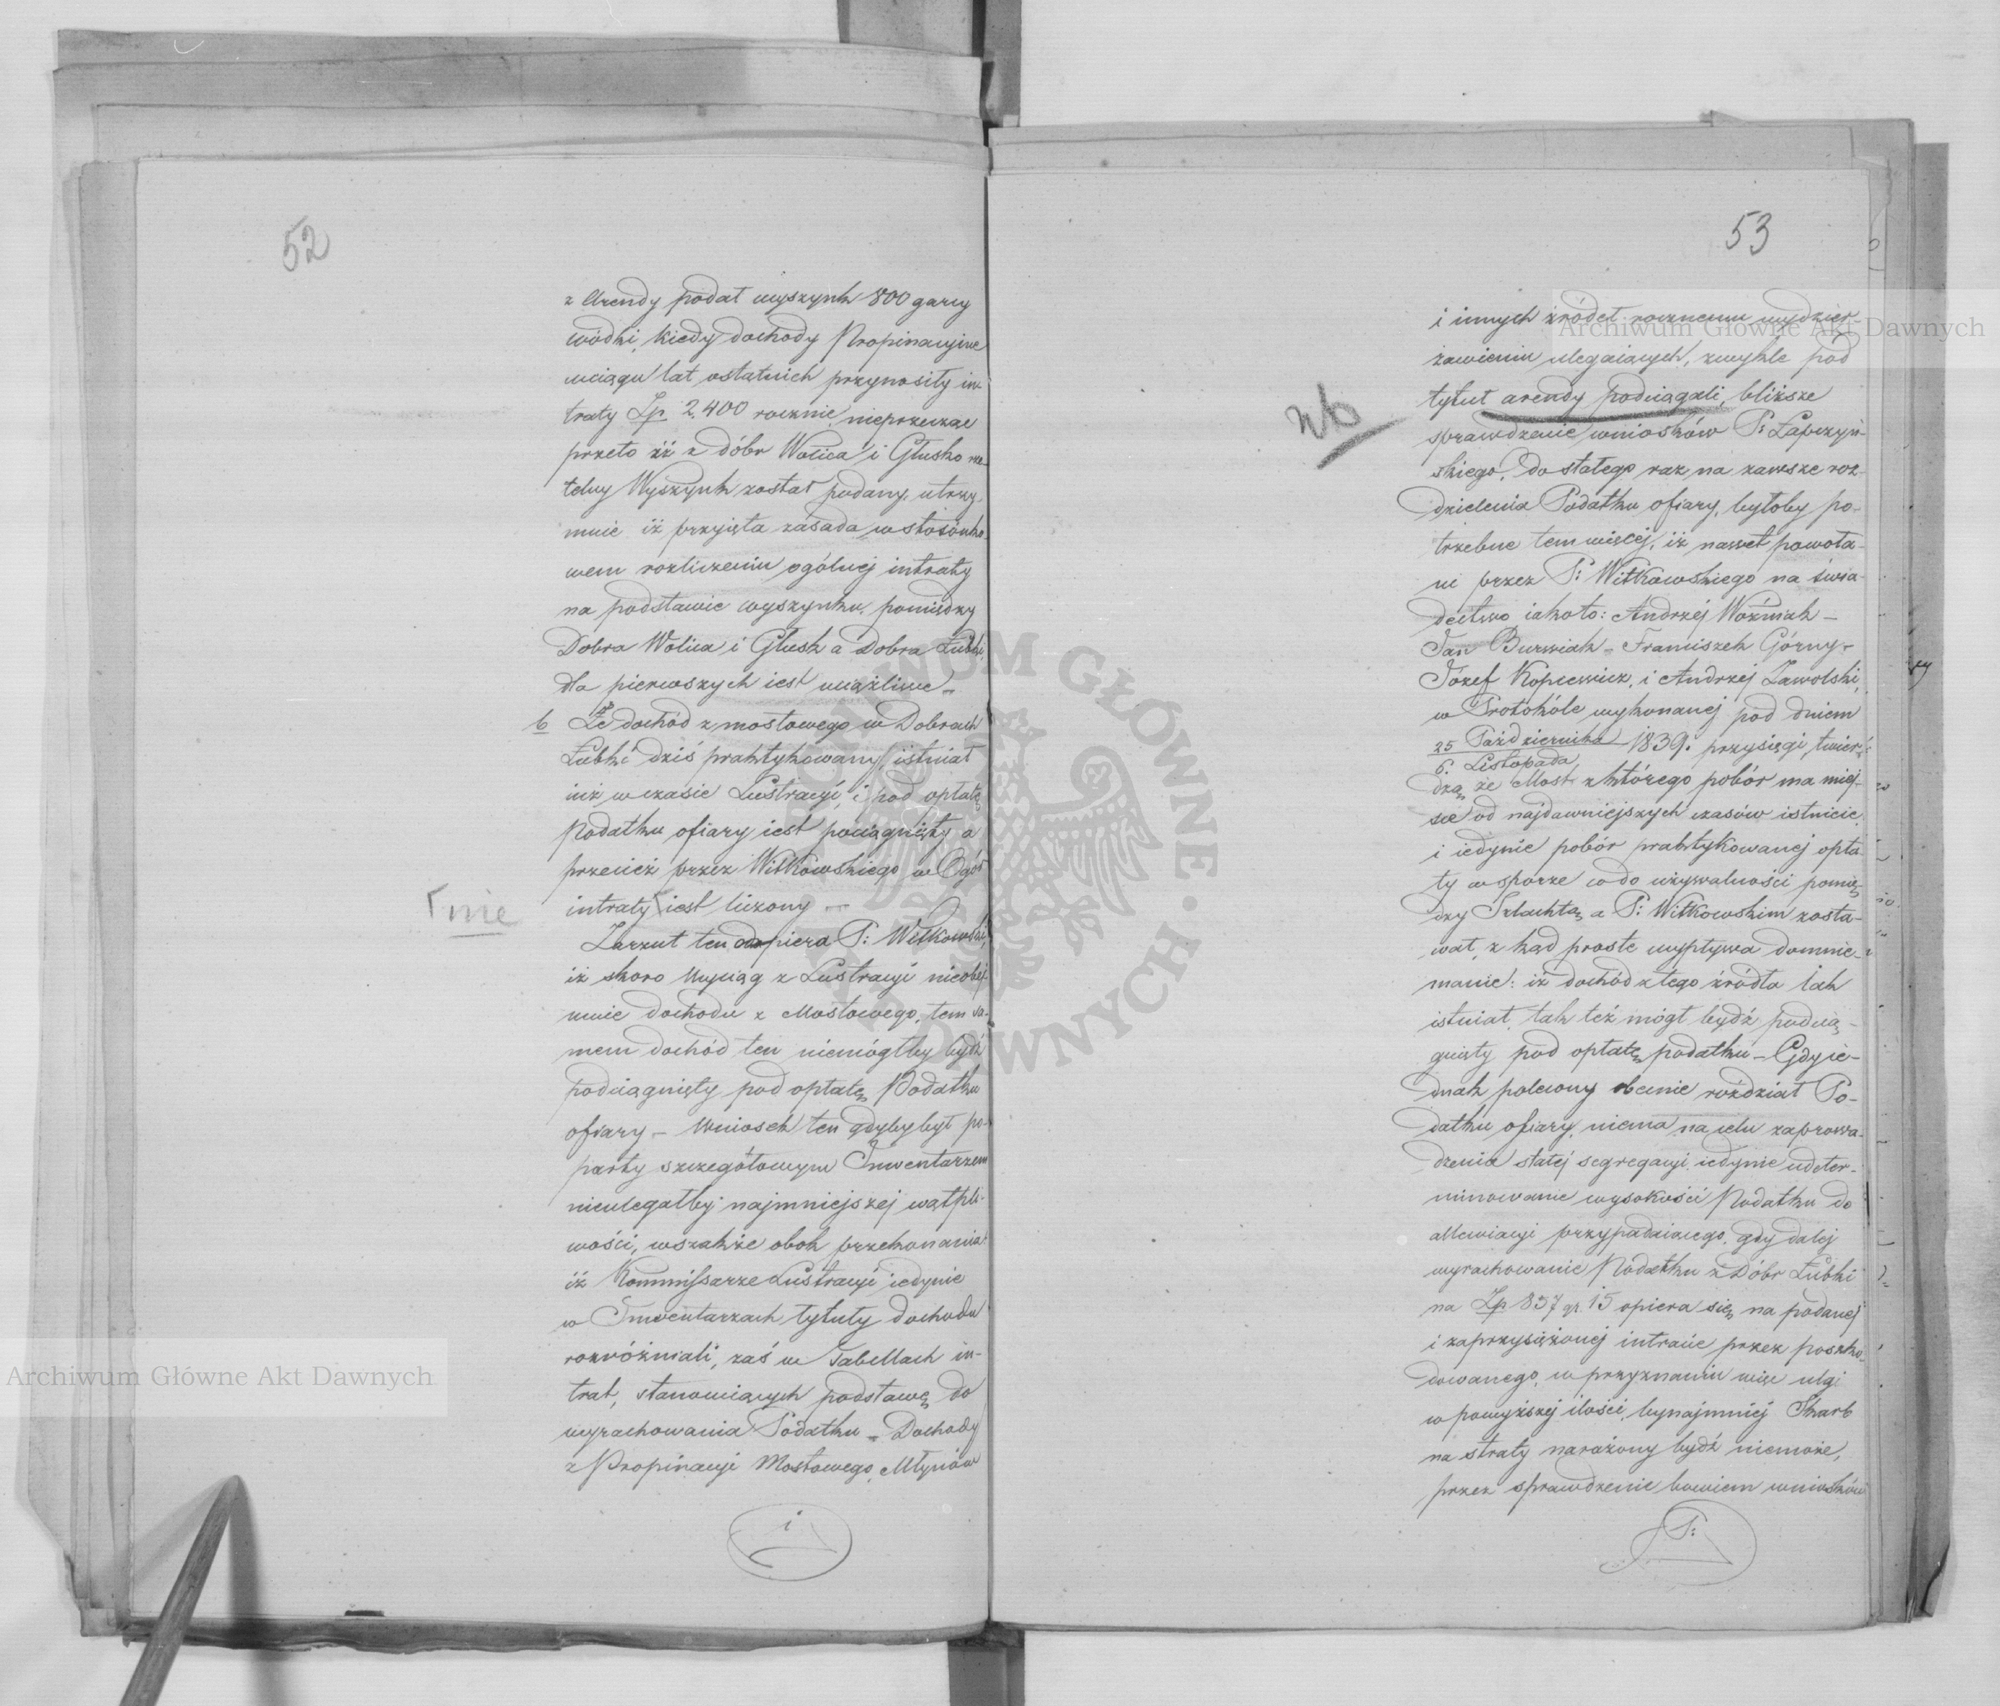 52
z Arendy podał wyszynk 800 garcy
wódki, kiedy dochody Propinacyine
wciągu lat ostatnich przynosiły in-
traty Zp. 2.400 rocznie, nieprzecząc
przeto iż z dóbr Wolica i Głusko rze-
telny Wyszynk został podany, utrzy-
muie iż przyięta zasada w stosunko-
wem rozliczeniu ogólnej intraty
na podstawie wyszynku, pomiędzy
Dobra Wolica i Głusk a Dobra Łubki,
dla pierwszych iest uciążliwe –
6 Że dochód z mostowego w Dobrach
Łubki dziś praktykowany, istniał
iuż w czasie Lustracyi, i pod opłatę
Podatku ofiary iest pociągnięty a
przecież przez Witkowskiego w Ogół
intraty iest liczony –
nie
Zarzut ten odpiera P: Witkowski,
iż skoro Wyciąg z Lustracyi nieobej-
muie dochodu z Mostowego, tem sa-
mem dochód ten niemógłby bydź
podciągnięty pod opłatę Podatku
ofiary – Wniosek ten gdyby był po-
party szczegółowym Inwentarzem
nieulegałby najmniejszej wątpli-
wości, wszakże obok przekonania
iż Kommissarze Lustracyi iedynie
w Inwentarzach tytuły dochodu
rozróżniali, zaś w Tabellach in-
trat, stanowiących podstawę do
wyrachowania Podatku – Dochody
z Propinacyi Mostowego, Młynów
i
53
i innych źródeł rocznemu wydzier-
żawieniu ulegaiących, zwykle pod
tytuł arendy podciągali, bliższe
Nb
sprawdzenie wniosków P: Łapczyń-
skiego, do stałego raz na zawsze roz-
dzielenia Podatku ofiary, byłoby po-
trzebne tem więcej, iż nawet powoła-
ni przez P: Witkowskiego na świa-
dectwo iakoto: Andrzej Woźniak –
Jan Burwiak – Franciszek Górny –
Józef Kopiewicz, i Andrzej Zawolski,
w Protokóle wykonanej pod dniem
25 Października 1839. przysięgi, twier-
6. Listopada,
dzą, że Most z którego pobór ma miej-
sce od najdawniejszych czasów istnieie,
i iedynie pobór praktykowanej opła-
ty w sporze co do używalności pomię-
dzy Szlachtą, a P: Witkowskim zosta-
wał, z kąd proste wypływa domnie-
manie: iż dochód z tego źródła iak
istniał, tak też mógł bydź podcią-
gnięty pod opłatę podatku – Gdy ie-
dnak polecony obecnie rozdział Po-
datku ofiary, niema na celu zaprowa-
dzenia stałej segregacyi iedynie udeter-
minowanie wysokości Podatku do
allewiacyi przypadaiącego, gdy dalej
wyrachowanie Podatku z Dóbr Łubki
na Zp 837 gr. 15 opiera się, na podanej
i zaprzysiężonej intracie przez poszko-
dowanego, w przyznaniu więc ulgi
w powyższej ilości, bynajmniej Skarb
na straty narażony bydź niemoże,
przez sprawdzenie bowiem wniosków
P:
Archiwum Główne Akt Dawnych
Archiwum Główne Akt Dawnych
ARCHIWUM GŁÓWNE AKT DAWNYCH